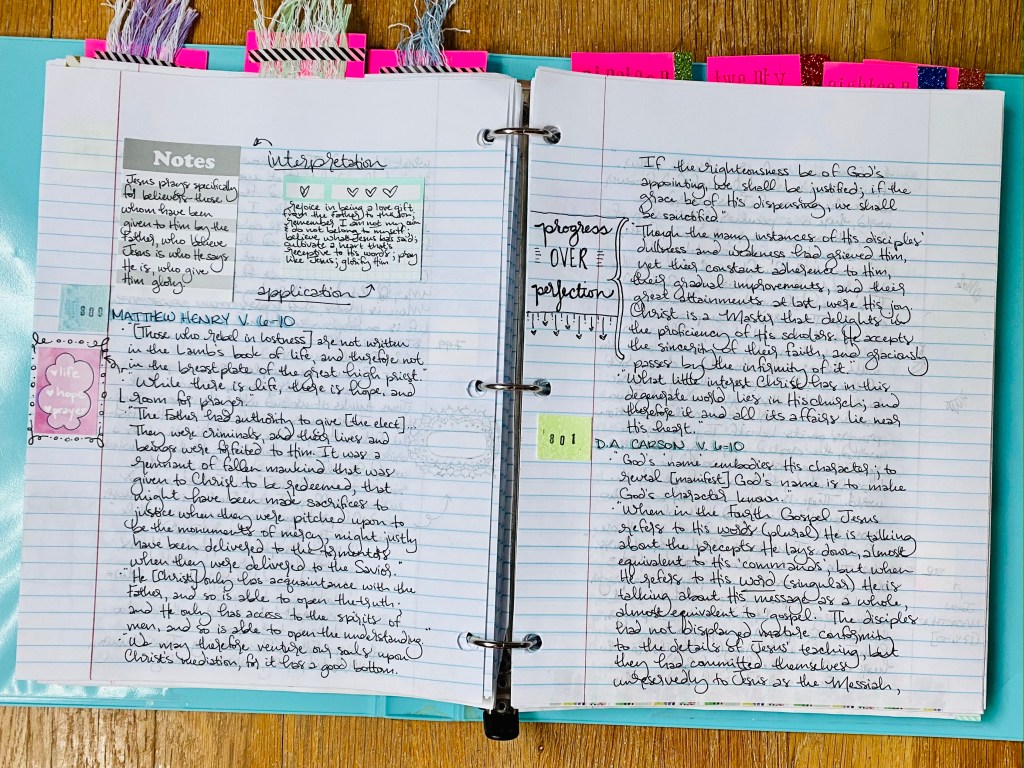 Notes
Jesus prays specifically
for believers - those
whom have been
given to Him by the
Father, who believe
Jesus is who He says
He is, who give
Him glory
interpretation
rejoice in being a love gift
from the Father to the Son;
remember I am not my own
& do not belong to myself;
believe what Jesus has said;
cultivate a heart that's
receptive to His words; pray
like Jesus; glorify Him
application
800
MATTHEW HENRY V. 6-10
"[Those who rebel in lostness] are not written
in the Lamb's book of life, and therefore not
in the breastplate of the great high priest."
"While there is life, there is hope, and
room for prayer."
life
hope
prayer
"The Father had authority to give [the elect]...
They were criminals, and their lives and
beings were forfeited to Him. It was a
remnant of fallen mankind that was
given to Christ to be redeemed, that
might have been made sacrifices to
justice when they were pitched upon to
be the monuments of mercy, might justly
have been delivered to the tormentors
when they were delivered to the Savior."
"He [Christ] only has acquaintance with the
Father, and so is able to open the truth.
and He only has access to the spirits of
men, and so is able to open the understanding."
"We may therefore venture our souls upon
Christ's mediation, for it has a good bottom.
twenty
If the righteousness be of God's
appointing, we shall be justified; if the
grace be of His dispensing, we shall
be sanctified."
progress
OVER
perfection
"Though the many instances of His disciples'
dullness and weakness had grieved Him,
yet thier constant adherence to Him,
their gradual improvements, and their
great attainments at last, were His joy.
Christ is a Master that delights in
the proficiency of His scholars. He accepts
the sincerity of their faith, and graciously
passes by the infirmity of it."
"What little interest Christ has in this
degenerate world lies in His church; and
therefore it and all its affairs lie near
His heart."
801
D.A. CARSON V. 6-10
"God's name embodies His character; to
reveal [manifest] God's name is to make
God's character known."
"When in the Fourth Gospel Jesus
refers to His words (plural) He is talking
about the precepts He lays down, almost
equivalent to His 'commands', but when
He refers to His word (singular) He is
talking about His message as a whole,
almost equivalent to 'gospel.' The disciples
had not displayed mature conformity
to the details of Jesus' teaching, but
they had committed themselves
unreservedly to Jesus as the Messiah,